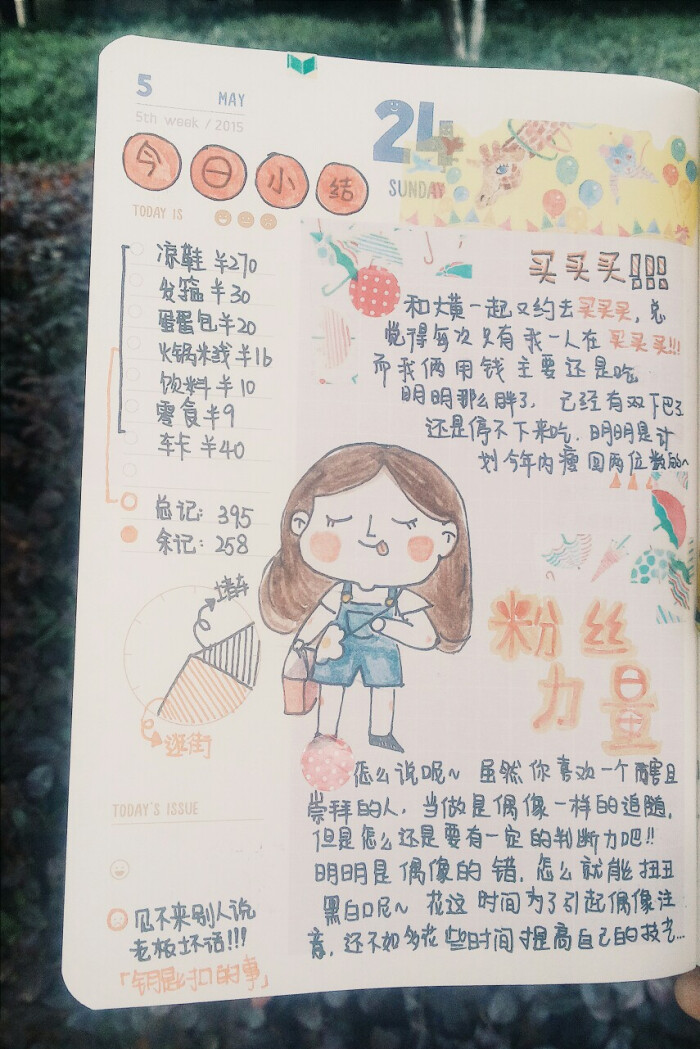 5 MAY
5th week / 2015
24
SUNDAY
今日小结
TODAY IS
凉鞋 ¥270
发箍 ¥30
蛋蛋包 ¥20
火锅米线 ¥16
饮料 ¥10
零食 ¥9
车卡 ¥40
总记: 395
余记: 258
堵车
逛街
TODAY'S ISSUE
见不来别人说
老板坏话!!!
买买买!!!
和大黄一起又约去买买买,总
觉得每次只有我一人在买买买!!!
而我俩用钱主要还是吃
明明那么胖了,已经有双下巴了
还是停不下来吃,明明是计
划今年内瘦回两位数的~
粉丝
力量
怎么说呢~ 虽然你喜欢一个人且
崇拜的人,当做是偶像一样的追随,
但是怎么还是要有一定的判断力吧!!
明明是偶像的错,怎么就能扭丑
黑白呢~ 花这时间为了引起偶像注
意,还不如多花些时间才提高自己的技术...